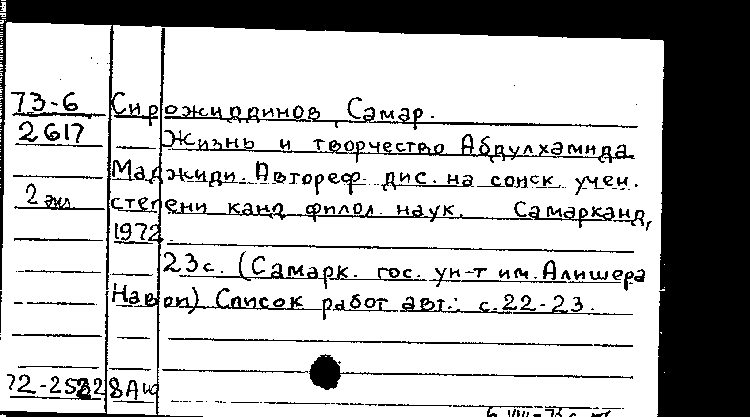 73-6 Сирожиддинов, Самар.
2617 Жизнь и творчество Абдулхамида
Маджиди. Автореф. дис. на соиск. учен.
2 экз. степени канд. филол. наук. Самарканд,
1972
23 с. (Самарк. гос. ун-т им. Алишера
Навои) Список работ авт.: с. 22-23.